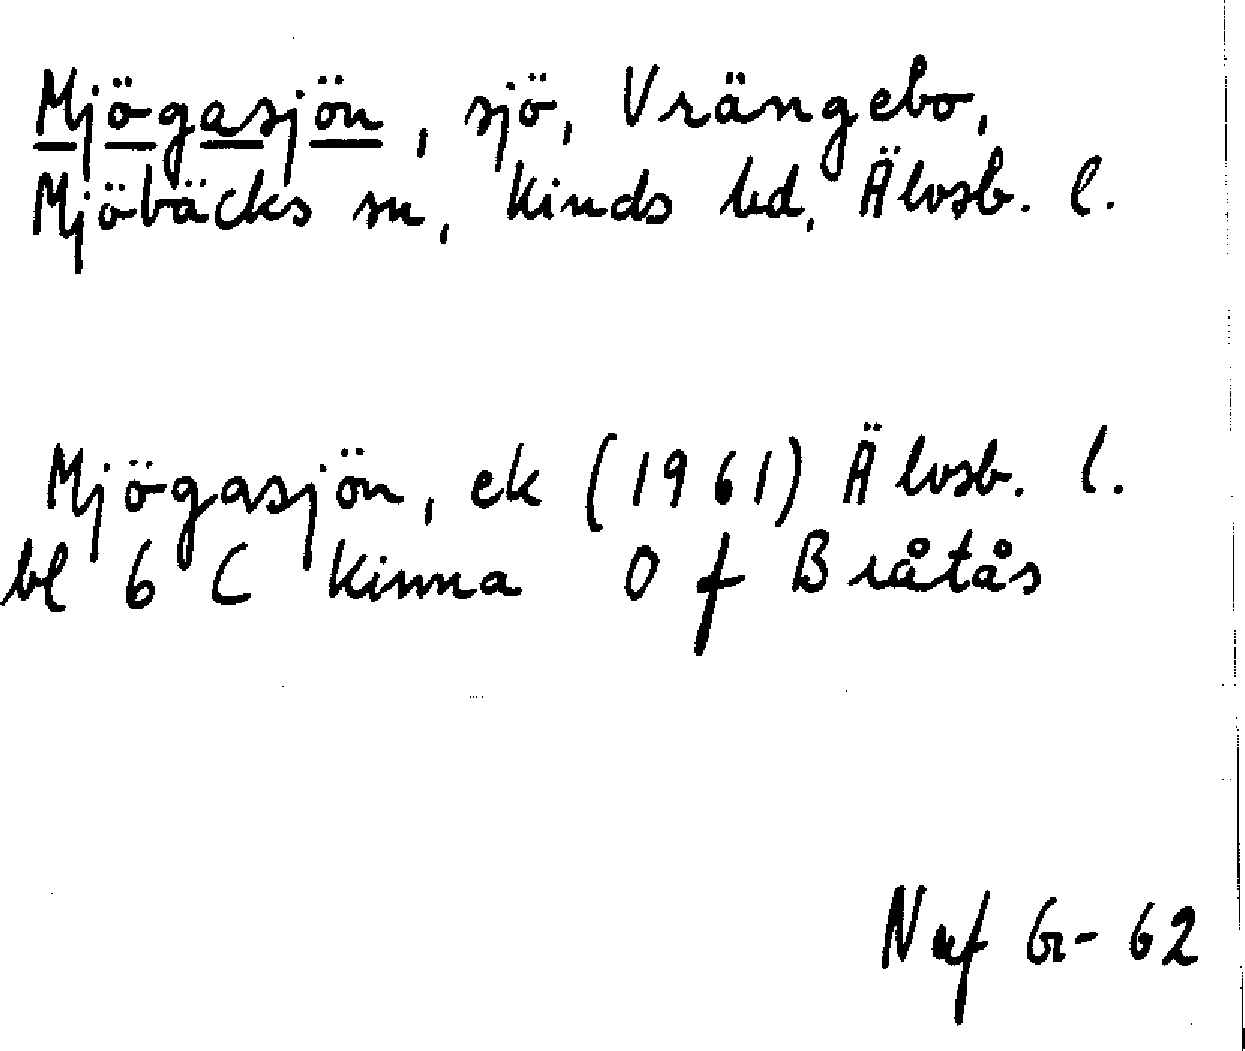 Mjögasjön, sjö, Vrängebo,
Mjöbäcks sn, Kinds hd, Älvsb. l.
Mjögasjön, ek (1961) Älvsb. l.
bl 6 C Kinna O f Bråtås
G- 62